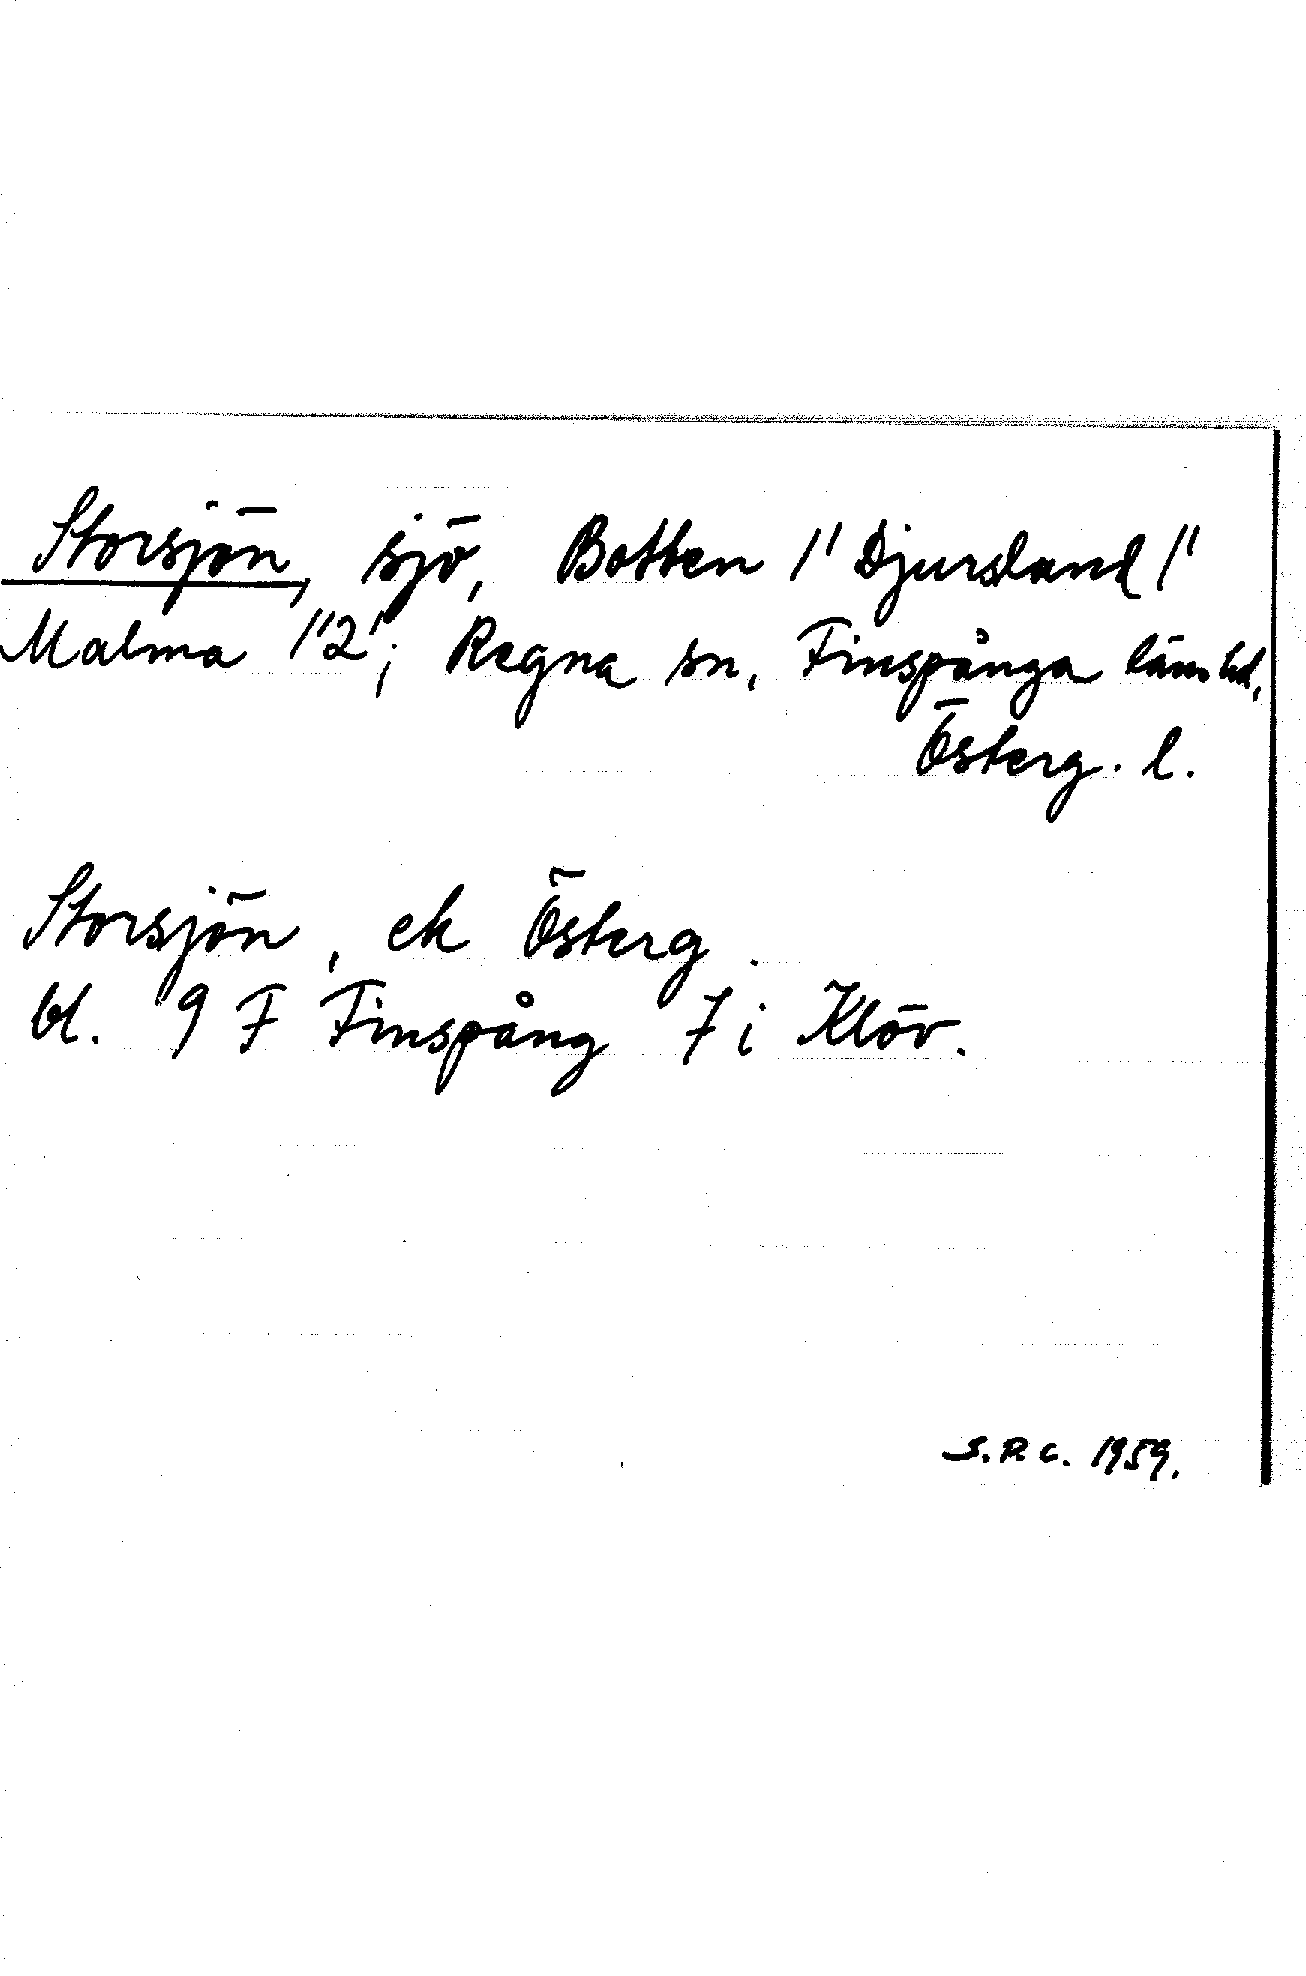 Storsjön, sjö, Botten 1' Djursland 1'
Malma 1'2'; Regna sn, Finspånga läns hd,
Österg. l.
Storsjön, ek Österg.
bl. 9 F Finspång 7 i Klöv.
S.R.C. 1959.